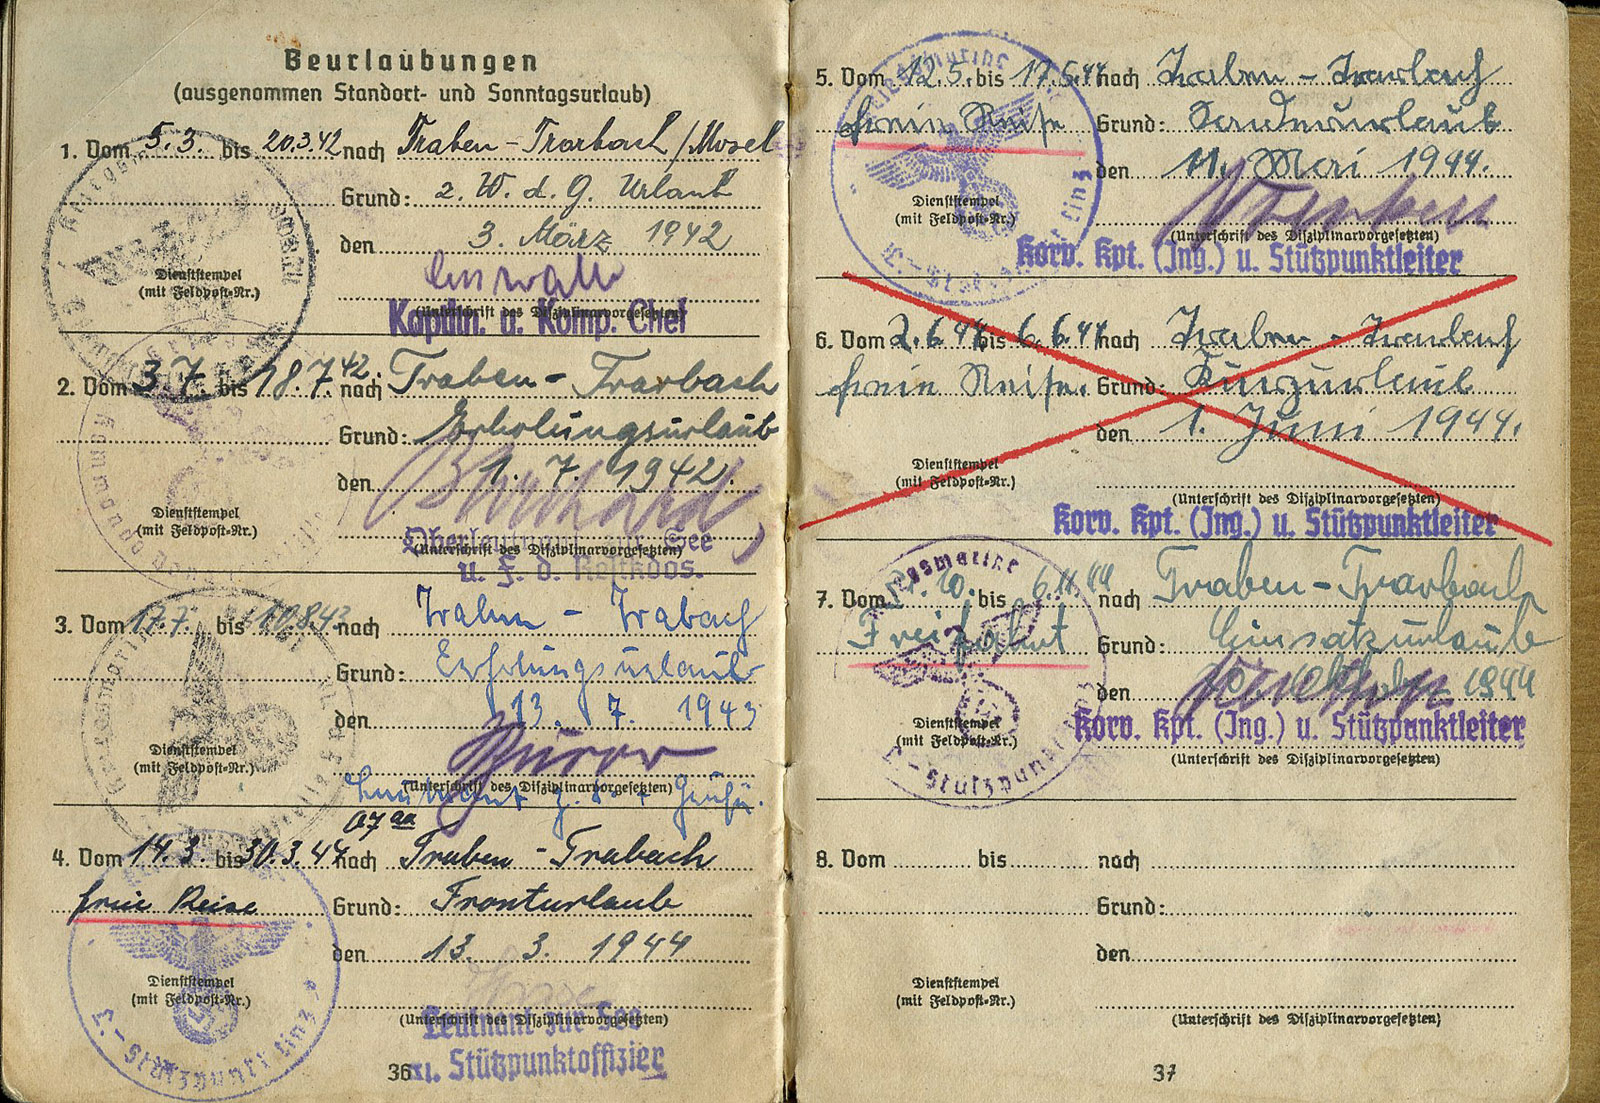 Beurlaubungen
(ausgenommen Standort- und Sonntagsurlaub)
1. Vom 5.3. bis 20.3.42 nach Traben-Trarbach/Mosel
Grund: 2. W. d. G. Urlaub
den 3. März 1942
Dienststempel
(mit Feldpost-Nr.)
(Unterschrift des Disziplinarvorgesetzten)
Kaptln. u. Komp. Chef
2. Vom 3.7. bis 18.7.42. nach Traben-Trarbach
Grund: Erholungsurlaub
den 1. 7. 1942.
Dienststempel
(mit Feldpost-Nr.)
Oberleutnant zur See
(Unterschrift des Disziplinarvorgesetzten)
u. F. d. Restkdos.
3. Vom 17.7. bis nach Traben - Trabach
Grund: Erholungsurlaub
den 13. 7. 1943
Dienststempel
(mit Feldpost-Nr.)
(Unterschrift des Disziplinarvorgesetzten)
4. Vom 14.3. bis 30.3.44 nach Traben-Trabach
freie Reise Grund: Fronturlaub
den 13. 3. 1944
Dienststempel
(mit Feldpost-Nr.)
(Unterschrift des Disziplinarvorgesetzten)
Leutnant zur See
u. Stützpunktoffizier
L.-Stützpunkt Linz
36
5. Vom 12.5. bis 17.5.44 nach Traben-Trarbach
freie Reise Grund: Sonderurlaub
den 11. Mai 1944.
Dienststempel
(mit Feldpost-Nr.)
(Unterschrift des Disziplinarvorgesetzten)
Korv. Kpt. (Ing.) u. Stützpunktleiter
6. Vom 2.6.44 bis 6.6.44 nach Traben-Trarbach
freie Reise. Grund: Kurzurlaub
den 1. Juni 1944.
Dienststempel
(mit Feldpost-Nr.)
(Unterschrift des Disziplinarvorgesetzten)
Korv. Kpt. (Ing.) u. Stützpunktleiter
Kriegsmarine
7. Vom bis 6.11.44 nach Traben-Trarbach
Freifahrt Grund: Einsatzurlaub
den 1944
Korv. Kpt. (Ing.) u. Stützpunktleiter
Dienststempel
(mit Feldpost-Nr.)
(Unterschrift des Disziplinarvorgesetzten)
8. Vom bis nach
Grund:
den
Dienststempel
(mit Feldpost-Nr.)
(Unterschrift des Disziplinarvorgesetzten)
37